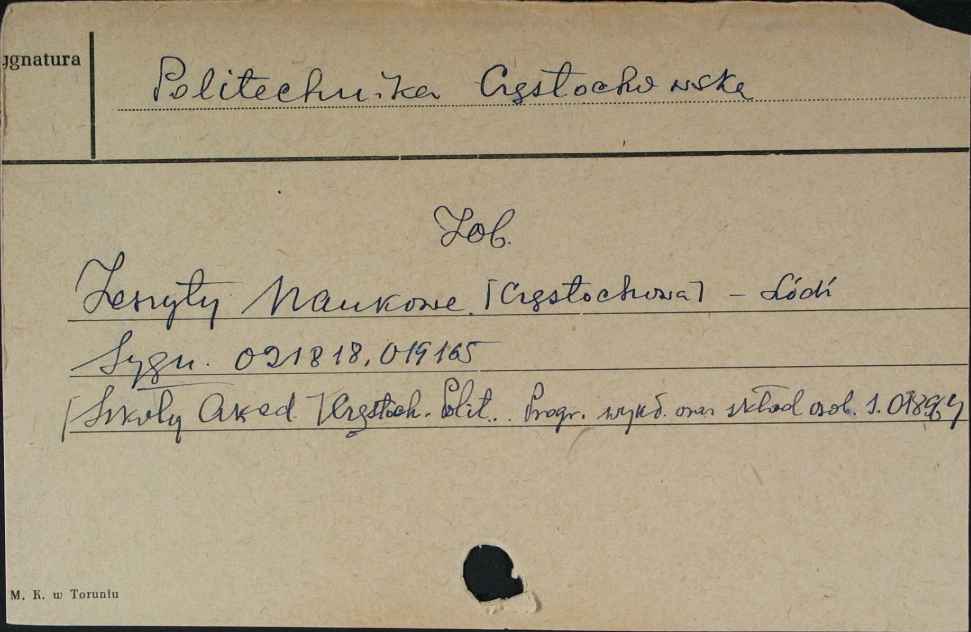 ygnatura
Politechnika Częstochowska
Zob.
Zeszyty Naukowe. [Częstochowa] – Łódź
Sygn. 021818, 019165
[Szkoły Akad.] Częstoch. Polit.. Progr. wykł. oraz skład osob. S.
M. K. w Toruniu